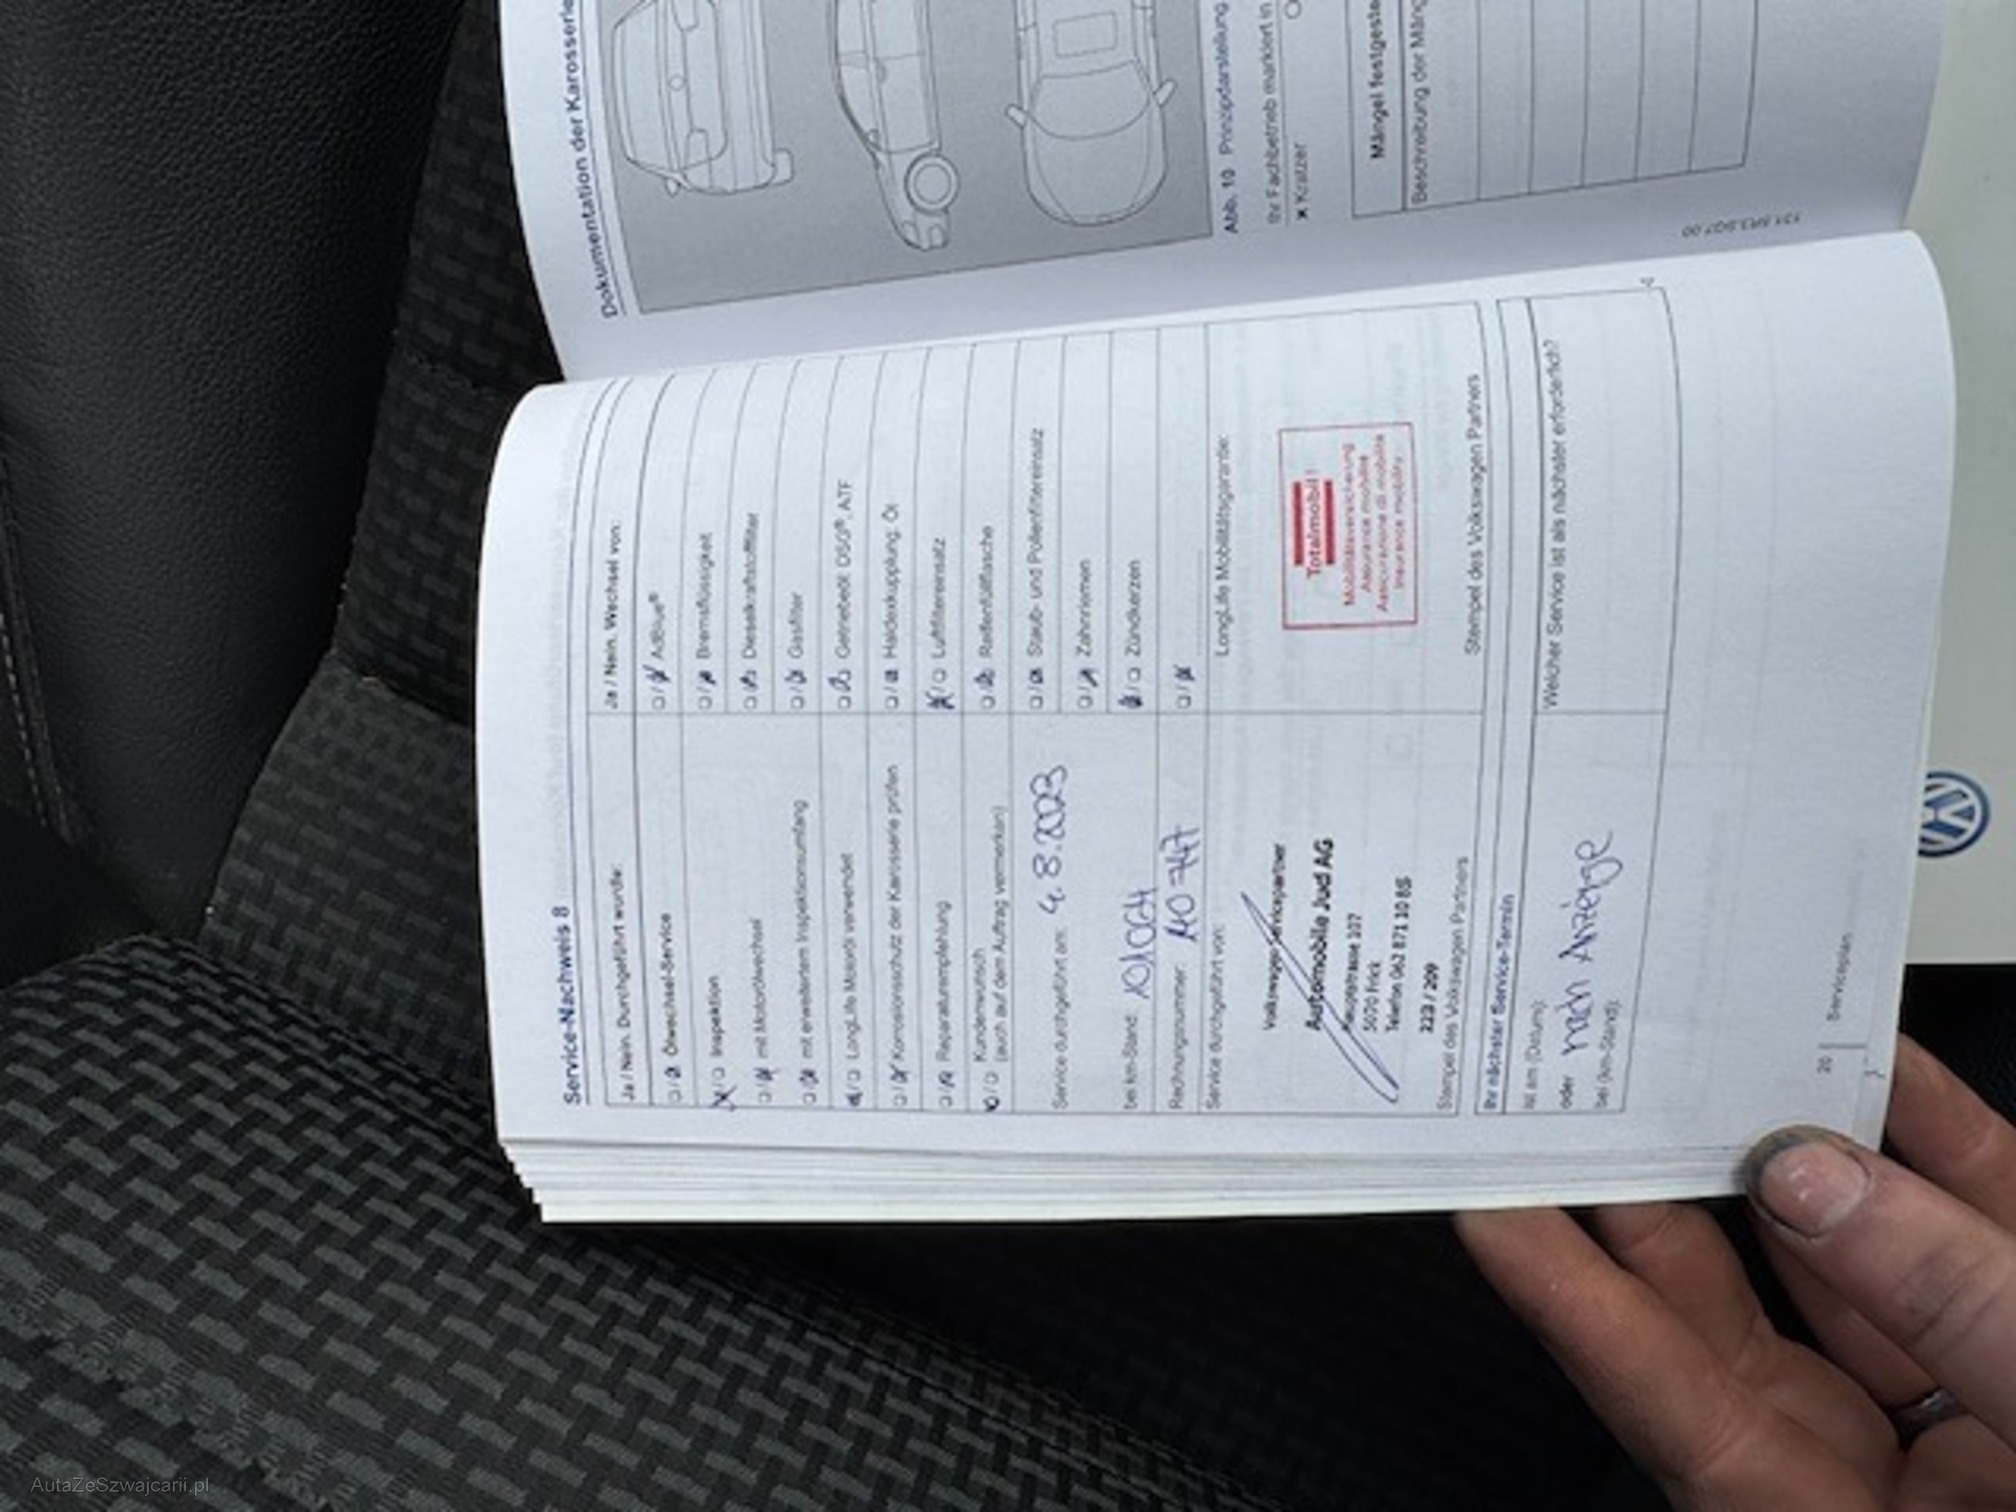 Service-Nachweis 8
Ja / Nein. Durchgeführt wurde:
Ölwechsel-Service
Inspektion
mit Motorölwechsel
mit erweitertem Inspektionsumfang
LongLife Motoröl verwendet
Korrosionsschutz der Karosserie prüfen
Reparaturempfehlung
Kundenwunsch
(auch auf dem Auftrag vermerken)
Service durchgeführt am: 4.8.2023
bei km-Stand: 101064
Rechnungsnummer: 40747
Service durchgeführt von:
Volkswagen-Servicepartner
Automobile Jud AG
Hauptstrasse 107
5070 Frick
Telefon 062 871 10 65
223 / 209
Stempel des Volkswagen Partners
Ja / Nein. Wechsel von:
AdBlue®
Bremsflüssigkeit
Dieselkraftstofffilter
Gasfilter
Getriebeöl: DSG®, ATF
Haldexkupplung: Öl
Luftfiltereinsatz
Reifenfüllflasche
Staub- und Pollenfiltereinsatz
Zahnriemen
Zündkerzen
LongLife Mobilitätsgarantie:
Totalmobil!
Mobilitätsversicherung
Assurance mobilité
Assicurazione di mobilità
Insurance mobility
Stempel des Volkswagen Partners
Ihr nächster Service-Termin
ist am (Datum):
oder nach Anzeige
bei (km-Stand):
Welcher Service ist als nächster erforderlich?
20 Serviceplan
Dokumentation der Karosserie
Abb. 10 Prinzipdarstellung
Ihr Fachbetrieb markiert in
× Kratzer
Mängel festgeste
Beschreibung der Mäng
131.5R3.SQ7.00
AutaZeSzwajcarii.pl